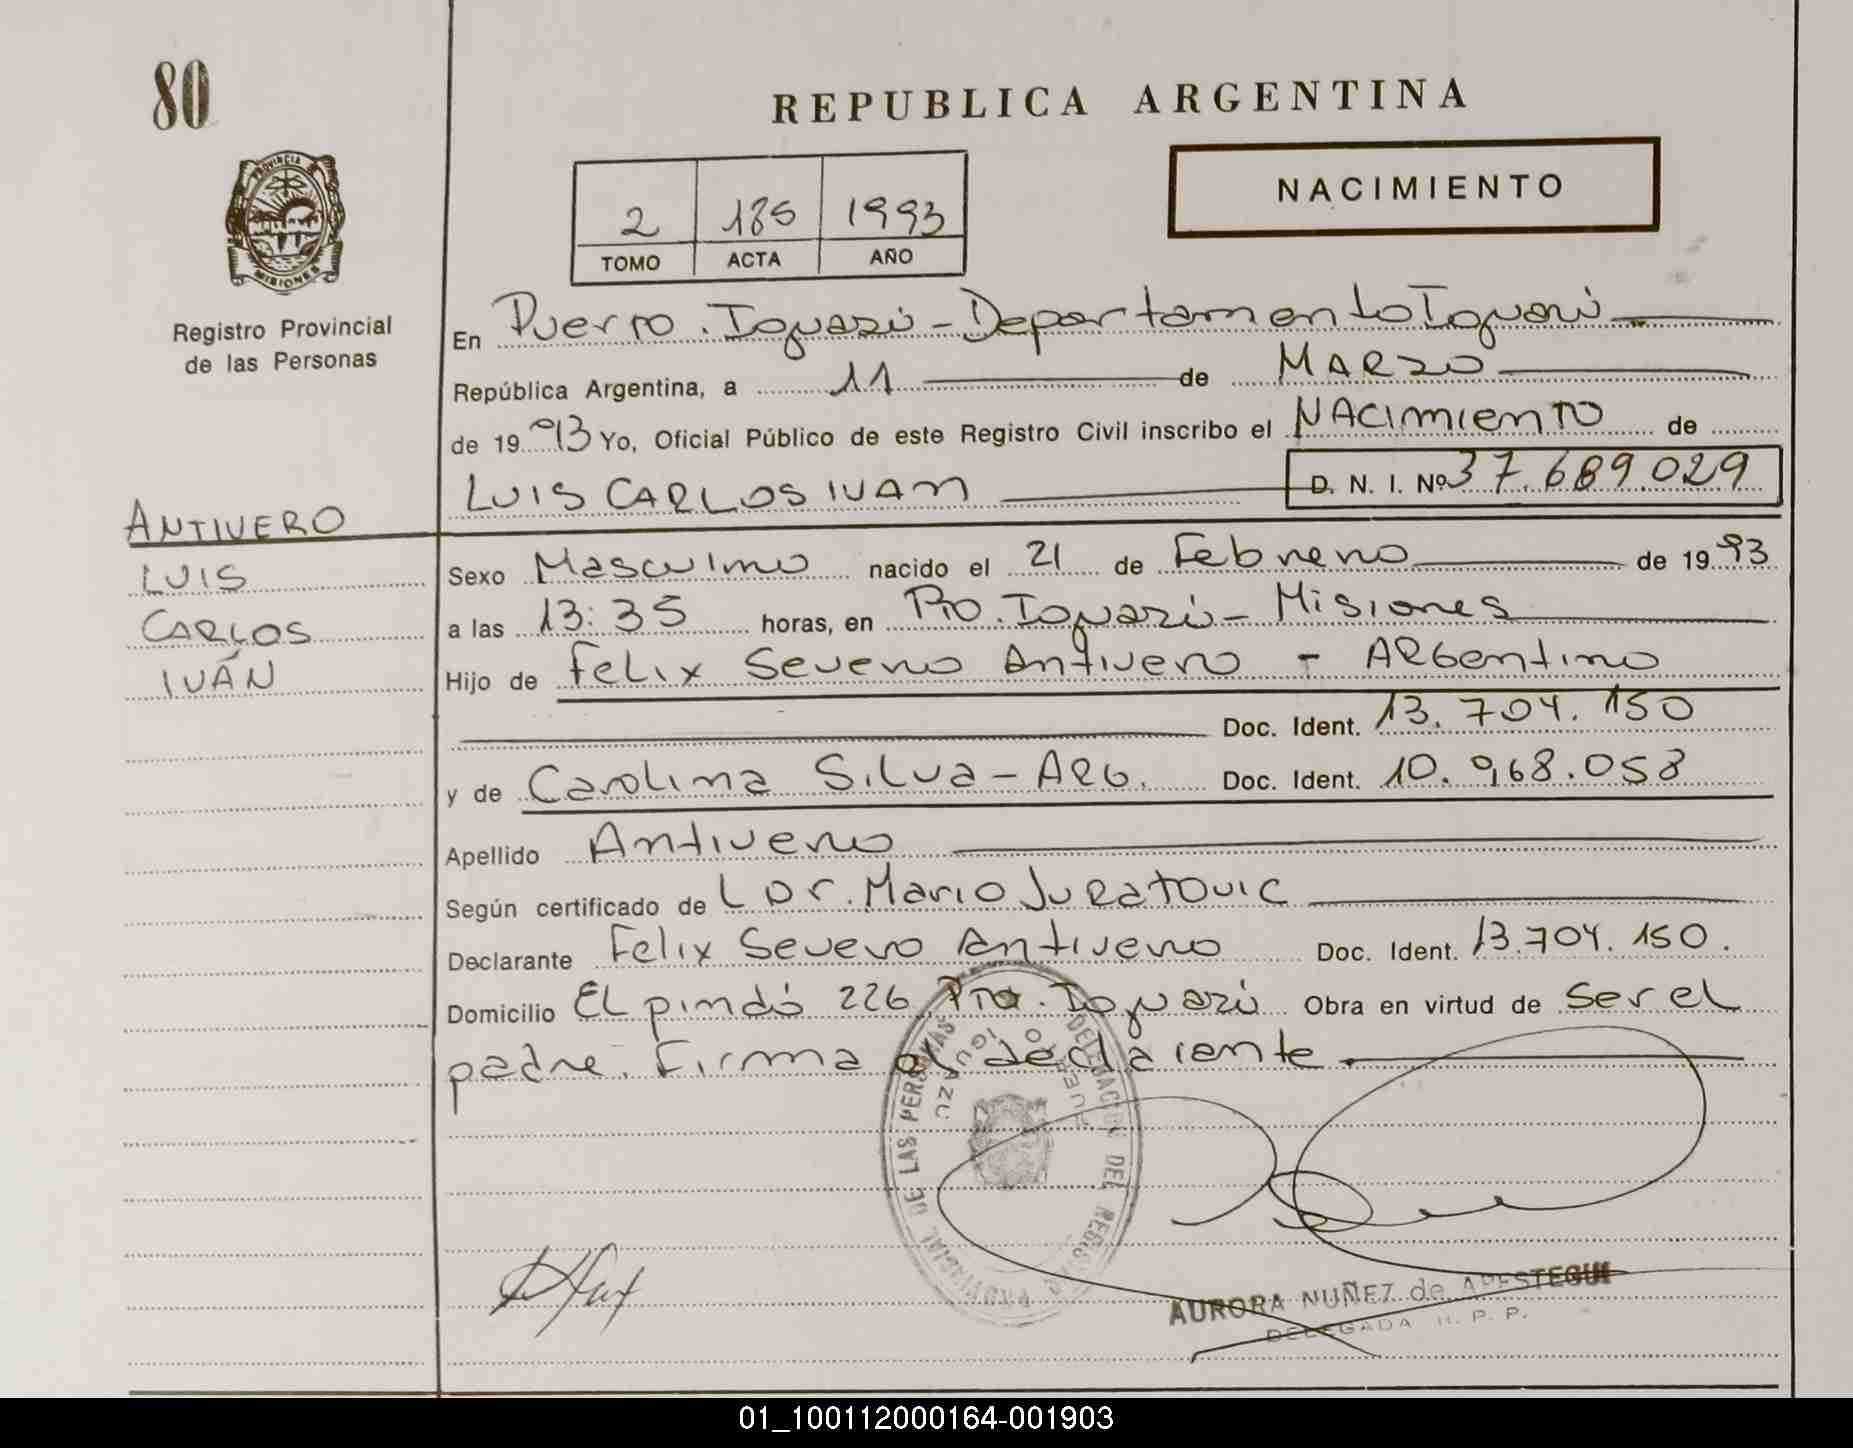 80
REPUBLICA ARGENTINA
PROVINCIA
MISIONES
NACIMIENTO
2 185 1993
TOMO ACTA AÑO
Registro Provincial
de las Personas
En Puerto. Iguazú - Departamento Iguazú
República Argentina, a 11 de MARZO
de 1993 Yo, Oficial Público de este Registro Civil inscribo el NACimienTO de
LUIS CARLOS IVAN D. N. I. Nº 37.689.029
ANTIVERO
LUIS
CARLOS
IVÁN
Sexo Masculino nacido el 21 de Febrero de 1993
a las 13:35 horas, en Pto. Iguazú - Misiones
Hijo de Felix Severo Antivero - ARGentino
Doc. Ident. 13.704.150
y de Carolina Silva - ARG. Doc. Ident. 10.968.058
Apellido Antivero
Según certificado de L Dr. Mario Juratovic
Declarante Felix Severo Antivero Doc. Ident. 13.704.150.
Domicilio EL pindó 226 Pto. Iguazú Obra en virtud de ser el
padre. Firma el declarante
DELEGACION DEL REGISTRO PROVINCIAL DE LAS PERSONAS
PUERTO IGUAZU
AURORA NUÑEZ de APESTEGUI
DELEGADA R. P. P.
01_100112000164-001903